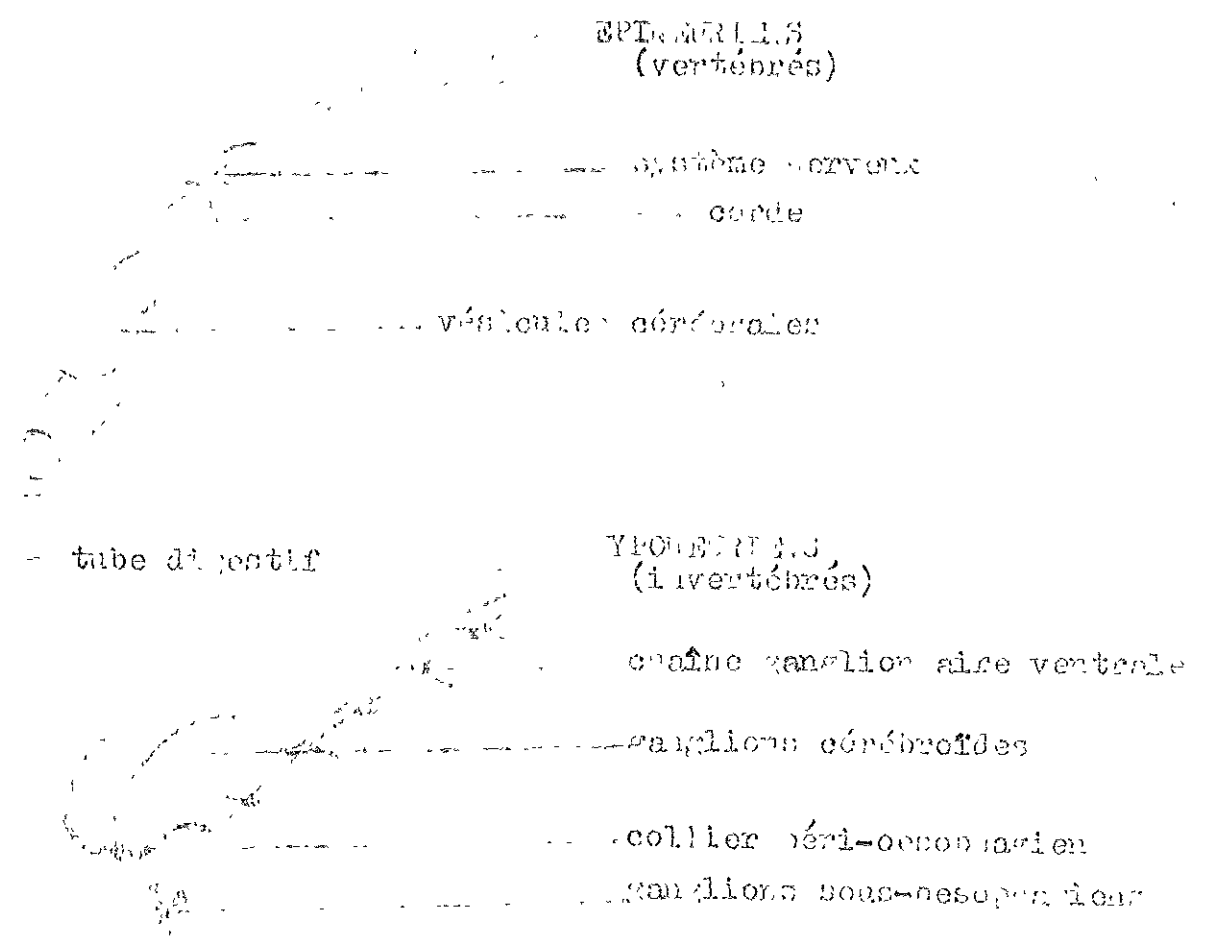 (vertébrés)
système nerveux
corde
vésicules cérébrales
tube digestif
(invertébrés)
chaîne ganglionnaire ventrale
ganglions cérébroïdes
collier péri-oesophagien
ganglions sous-oesophagiens